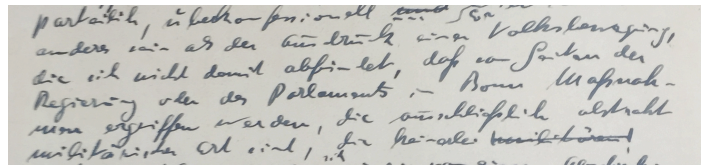 parteilich, überkonfessionell und
anderes sein als der Ausdruck einer Volksbewegung,
die sich nicht damit abfindet, daß von Seiten der
Regierung oder des Parlaments in Bonn Maßnah-
men ergriffen werden, die ausschließlich abstrakt
militärischer Art sind, die keinerlei militärisch
sich